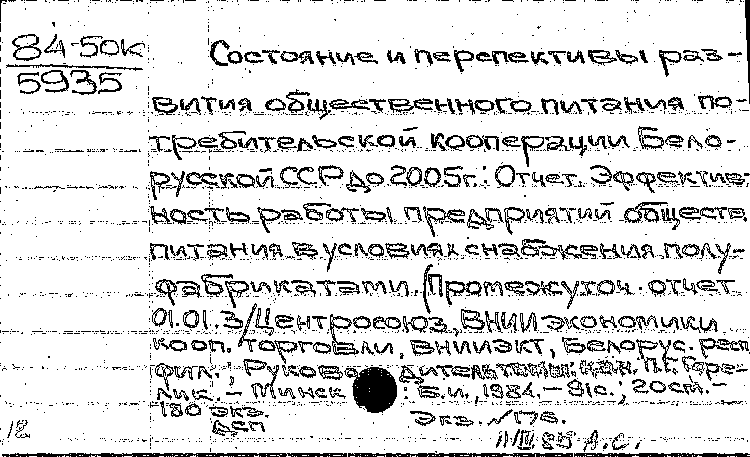 84-50к
5935
Состояние и перспективы раз-
вития общественного питания по-
требительской кооперации Бело-
русской ССР до 2005г.: Отчет. Эффектив-
ность работы предприятий обществ.
питания в условиях снабжения полу-
фабрикатами. (Промежуточ. отчет
01.01.3/Центросоюз, ВНИИ экономики
кооп. торговли, ВНИИЭКТ, Белорус. респ
фил.; Руково дитель П.Г. Горе-
лик. - Минск : Б.и., 1984. - 81с.; 20см. -
180 экз.
ДСП Экз. №178.
12